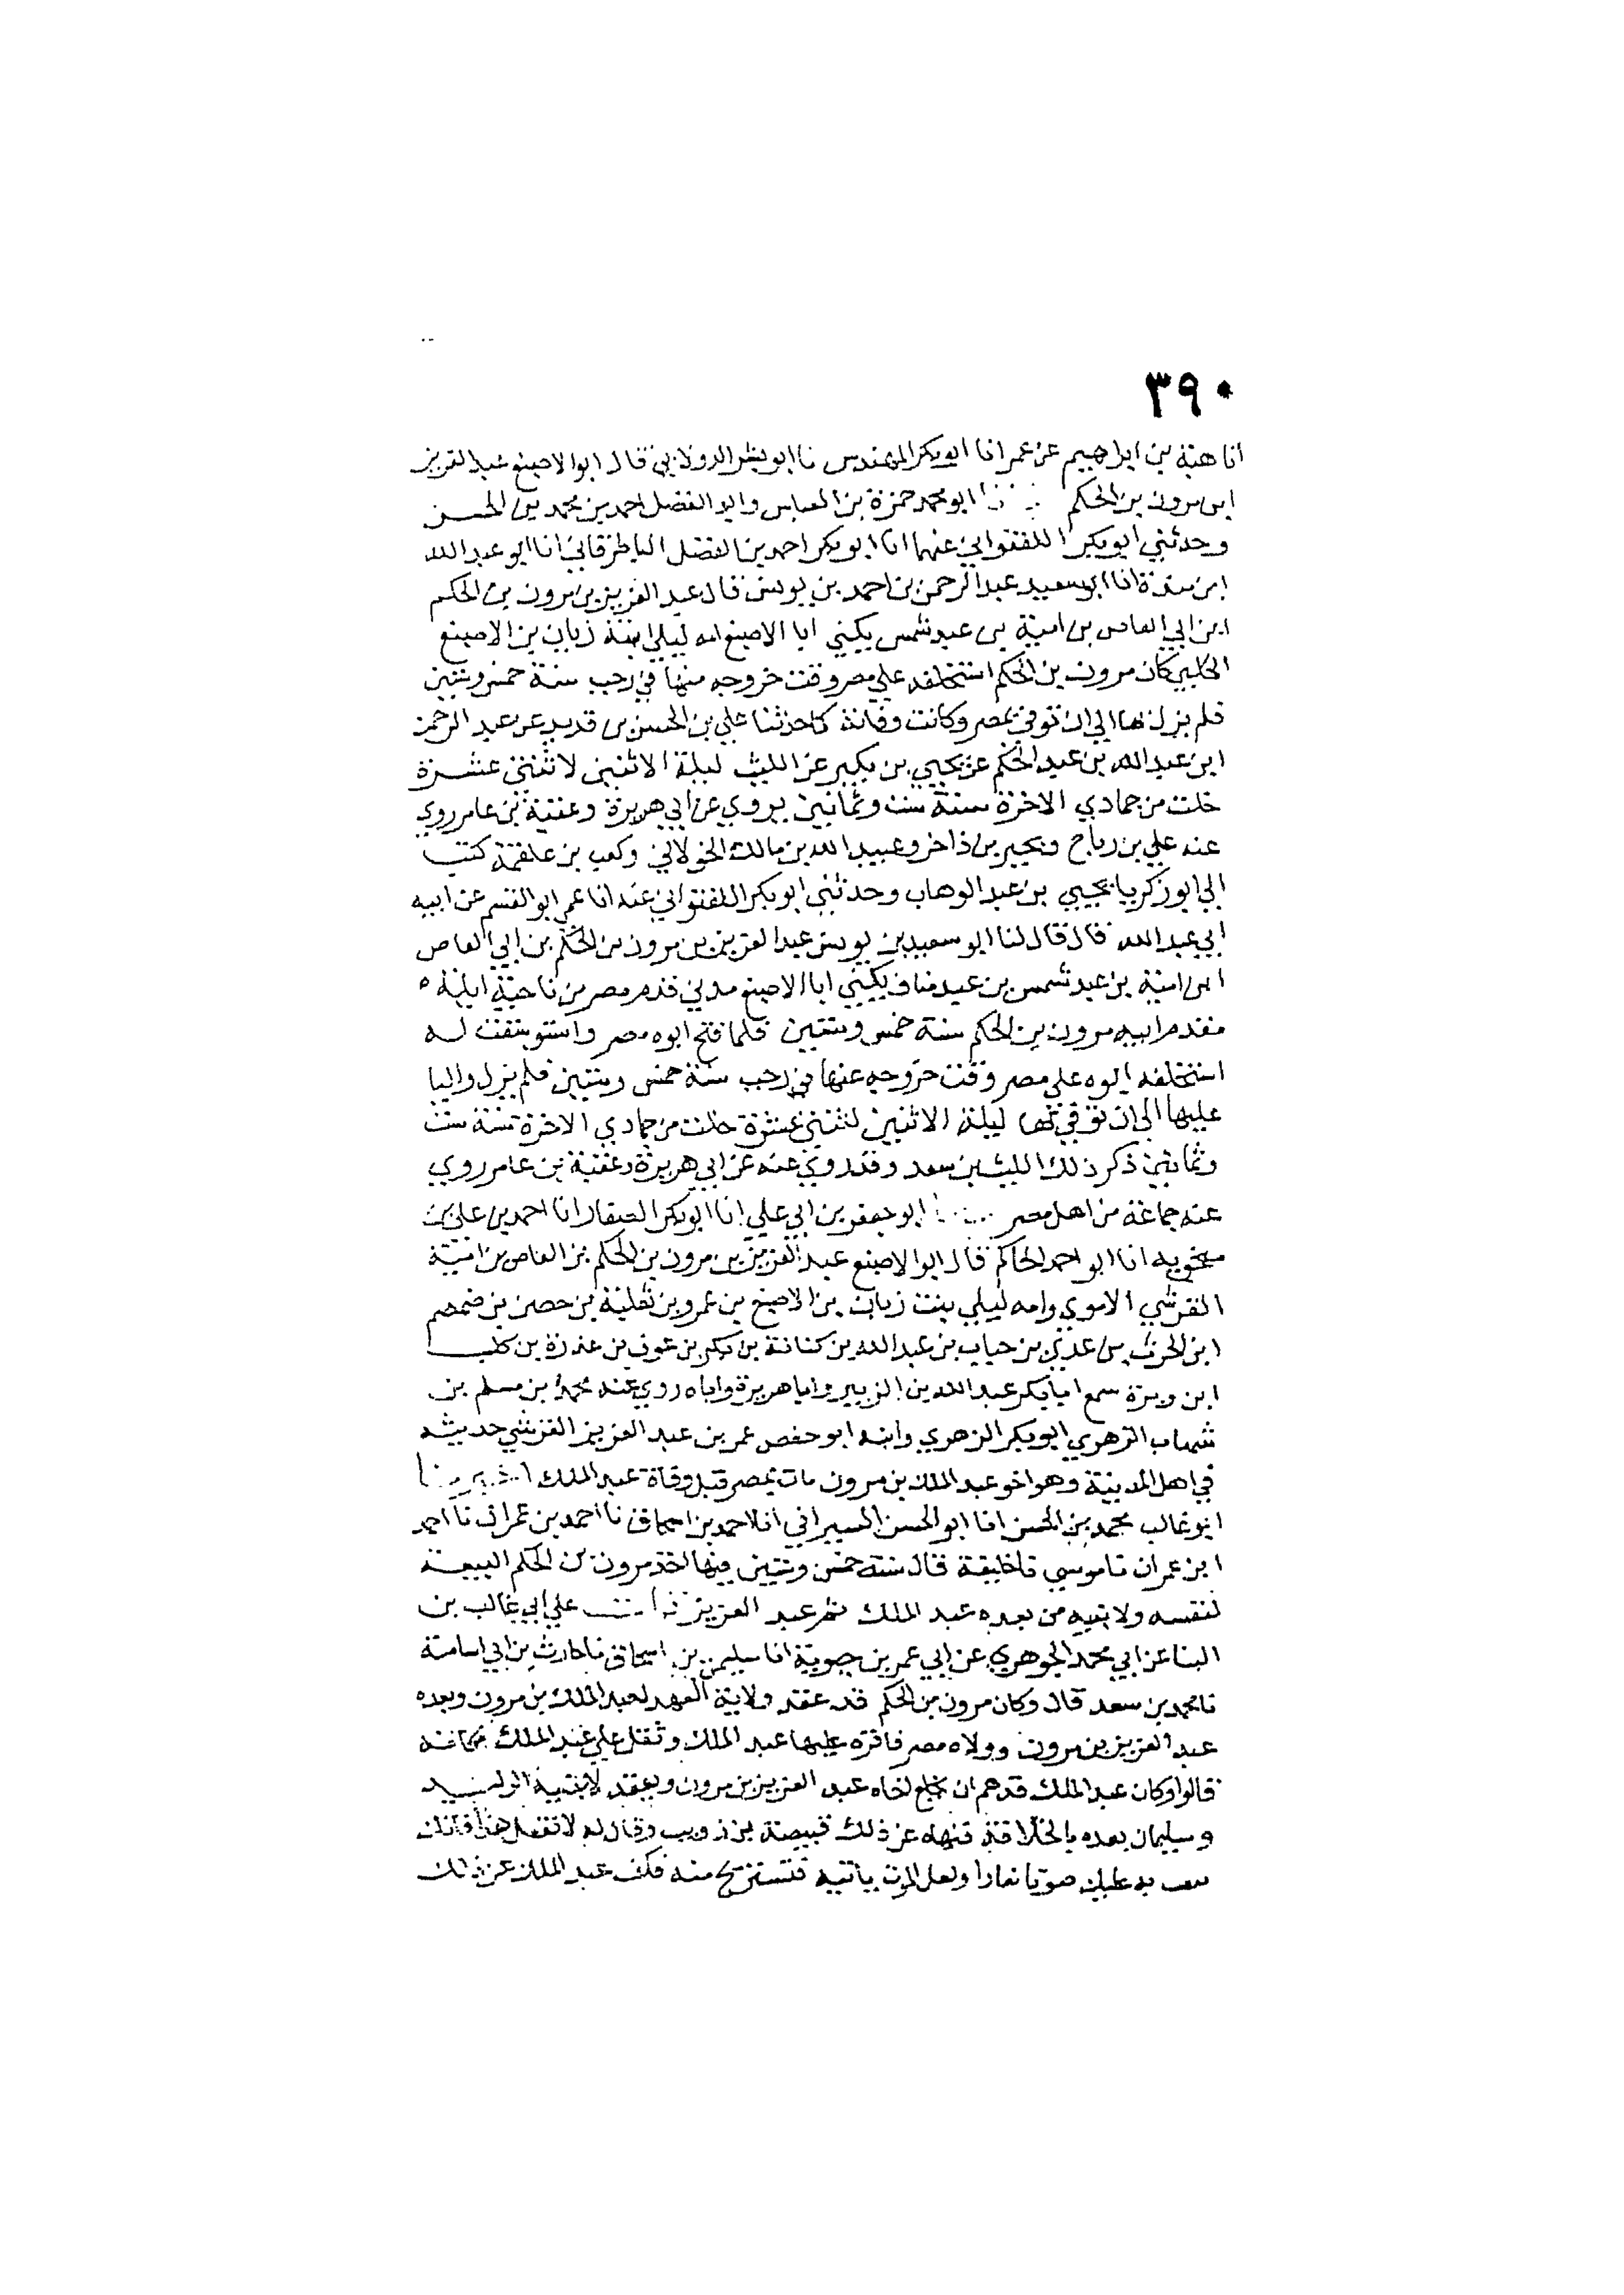 ٣٩٠
انا هبة بن ابراهيم عن عمر انا ابو بكر المهندس نا ابو بشر الدولابي قال ابو الاصبغ عبد العزيز
ابن مرون بن الحكم ابو محمد حمزة بن العباس وابو الفضل احمد بن محمد بن الحسن
وحدثني ابو بكر اللفتواني عنهما انا ابو بكر احمد بن الفضل الباطرقاني انا ابو عبد الله
ابن مندة انا ابو سعيد عبد الرحمن بن احمد بن يونس قال عبد العزيز بن مرون بن الحكم
ابن ابي العاص بن امية بن عبد شمس يكني ابا الاصبغ امه ليلي ابنة زبان بن الاصبغ
الكلبي كان مرون بن الحكم استخلفه علي مصر وقت خروجه منها في رجب سنة خمس وستين
فلم يزل بها الي ان توفي بمصر وكانت وفاته كما حدثنا علي بن الحسن بن قديد عن عبد الرحمن
ابن عبد الله بن عبد الحكم عن يحيي بن بكير عن الليث ليلة الاثنين لاثنتي عشرة
خلت من جمادي الاخرة سنة ست وثمانين يروي عن ابي هريرة وعقبة بن عامر روي
عنه علي بن رباح وبحير بن ذاخر وعبيد الله بن مالك الخولاني وكعب بن علقمة كتب
الي ابو زكريا يحيي بن عبد الوهاب وحدثني ابو بكر اللفتواني عنه انا عمي ابو القسم عن ابيه
ابي عبد الله قال قال لنا ابو سعيد بن يونس عبد العزيز بن مرون بن الحكم بن ابي العاص
ابن امية بن عبد شمس بن عبد مناف يكني ابا الاصبغ مدني قدم مصر من ناحية ايلة ه
مقدم ابيه مرون بن الحكم سنة خمس وستين فلما فتح ابوه مصر واستوسقت له
استخلفه ابوه علي مصر وقت خروجه عنها في رجب سنة خمس وستين فلم يزل واليا
عليها الي ان توفي بها ليلة الاثنين لثنتي عشرة خلت من جمادي الاخرة سنة ست
وثمانين ذكر ذلك الليث بن سعد وقد روي عنه عن ابي هريرة وعقبة بن عامر روي
عنه جماعة من اهل مصر ابو جعفر بن ابي علي انا ابو بكر الصفار انا احمد بن علي بن
منجويه انا ابو احمد الحاكم قال ابو الاصبغ عبد العزيز بن مرون بن الحكم بن العاص بن امية
القرشي الاموي وامه ليلي بنت زبان بن الاصبغ بن عمرو بن ثعلبة بن حصن بن ضمضم
ابن الحرث بن عدي بن جناب بن عبد الله بن كنانة بن بكر بن عوف بن عذرة بن كلب
ابن وبرة سمع ابا بكر عبد الله بن الزبير وابا هريرة واباه روي عنه محمد بن مسلم بن
شهاب الزهري ابو بكر الزهري وابنه ابو حفص عمر بن عبد العزيز القرشي حديثه
في اهل المدينة وهو اخو عبد الملك بن مرون مات بمصر قبل وفاة عبد الملك
ابو غالب محمد بن الحسن انا ابو الحسن السيرافي انا احمد بن اسحاق نا احمد بن عمران نا احمد
ابن عمران نا موسي نا خليفة قال سنة خمس وستين فيها اخذ مرون بن الحكم البيعة
لنفسه ولابنيه من بعده عبد الملك ثم عبد العزيز علي ابي غالب بن
البنا عن ابي محمد الجوهري عن ابي عمر بن حيوية انا سليمن بن اسحاق نا الحارث بن ابي اسامة
نا محمد بن سعد قال وكان مرون بن الحكم قد عقد ولاية العهد لعبد الملك بن مرون وبعده
عبد العزيز بن مرون وولاه مصر فاقره عليها عبد الملك وثقل علي عبد الملك مكانه
قالوا وكان عبد الملك قد هم ان يخلع اخاه عبد العزيز بن مرون ويعقد لابنيه الوليد
وسليمان بعده بالخلافة فنهاه عن ذلك قبيصة بن ذويب وقال له لا تفعل هذا فانك
به عليك صوتا نعارا ولعل الموت ياتيه فتستريح منه فكف عبد الملك عن ذلك